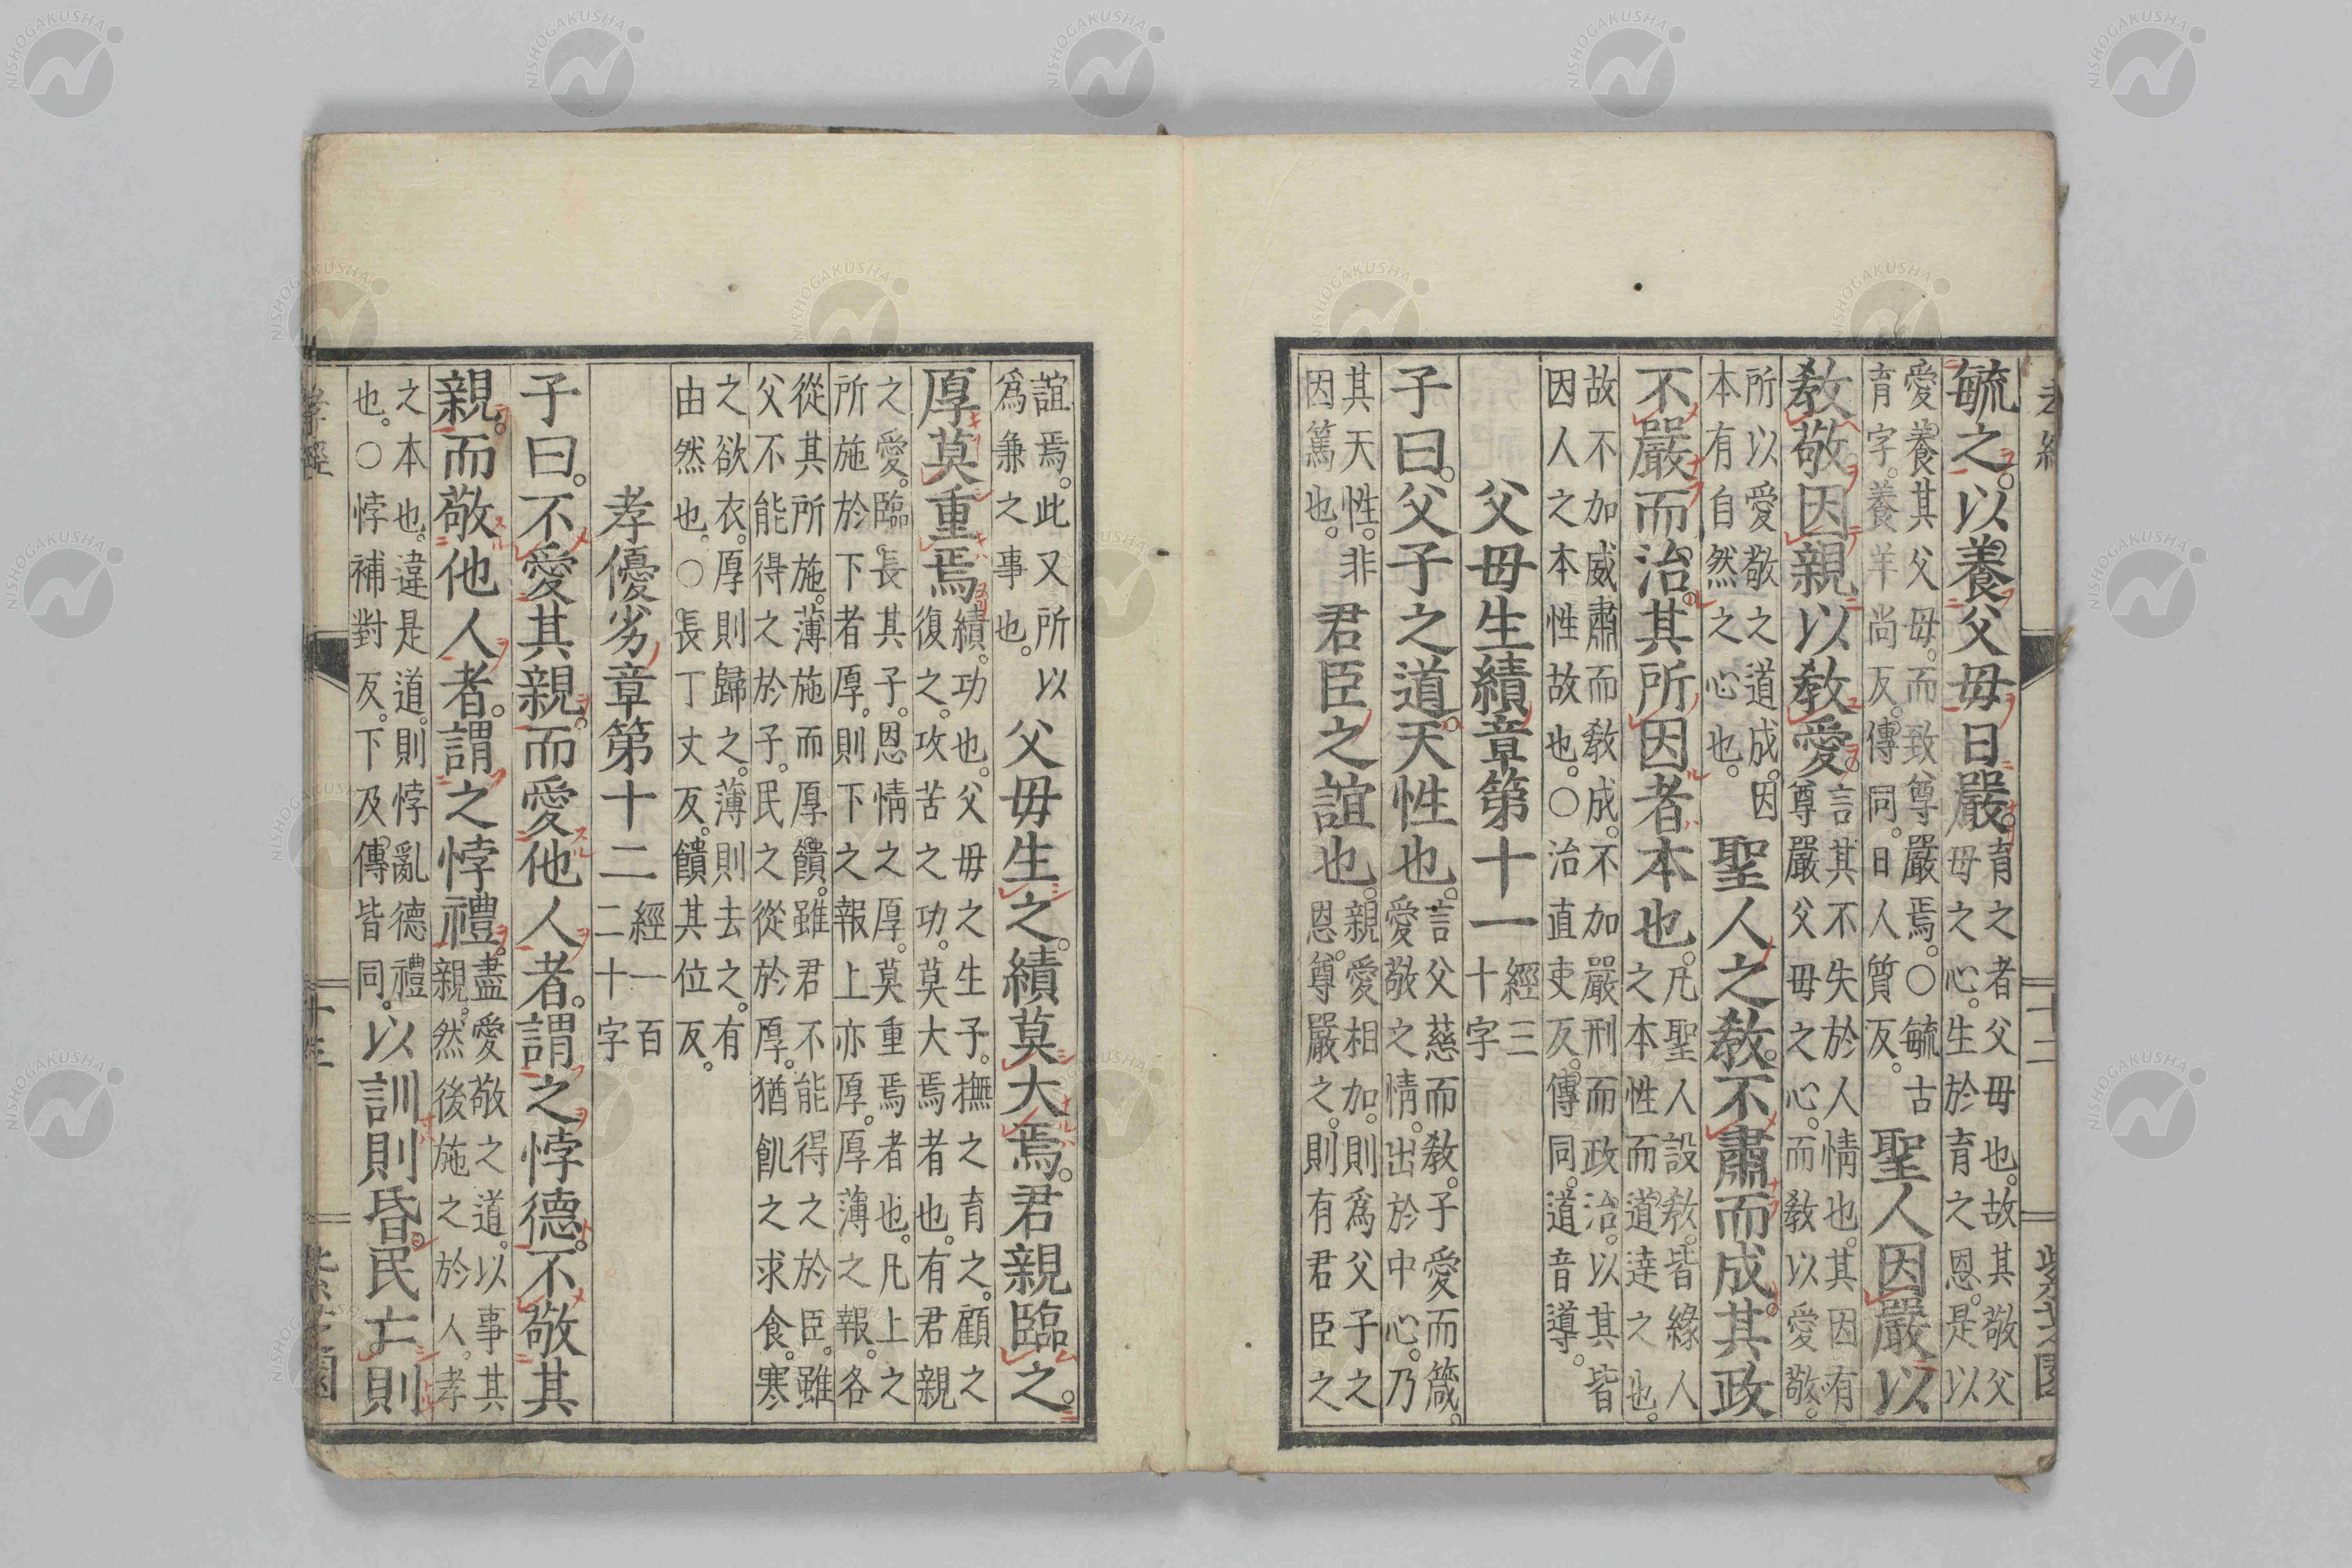 孝經 十二 紫芝園
毓之。以養父母日嚴。育之者父母也。故其敬父母之心。生於育之恩。是以
愛養其父母。而致尊嚴焉。○毓古育字。養羊尚反。傳同。日人質反。聖人因嚴以
教敬因親以教愛。言其不失於人情也。其因有尊嚴父母之心。而教以愛敬。
所以愛敬之道成。因本有自然之心也。聖人之教。不肅而成。其政
不嚴而治。其所因者本也。凡聖人設教。皆緣人之本性而道達之也。
故不加威肅而教成。不加嚴刑而政治。以其皆因人之本性故也。○治直吏反。傳同。道音導。
父母生績章第十一 經三十字
子曰。父子之道。天性也。言父慈而教。子愛而箴。愛敬之情。出於中心。乃
其天性。非因篤也。君臣之誼也。親愛相加。則爲父子之恩。尊嚴之。則有君臣之
誼焉。此又所以爲兼之事也。父母生之。績莫大焉。君親臨之。
厚莫重焉。績。功也。父母之生子。撫之育之。顧之復之。攻苦之功。莫大焉者也。有君親
之愛。臨長其子。恩情之厚。莫重焉者也。凡上之所施於下者厚。則下之報上亦厚。厚薄之報。各
從其所施。薄施而厚饋。雖君不能得之於臣。雖父不能得之於子。民之從於厚。猶飢之求食。寒
之欲衣。厚則歸之。薄則去之。有由然也。○長丁丈反。饋其位反。
孝優劣章第十二 經一百二十字
子曰。不愛其親。而愛他人者。謂之悖德。不敬其
親。而敬他人者。謂之悖禮。盡愛敬之道。以事其親。然後施之於人。孝
之本也。違是道。則悖亂德禮也。○悖補對反。下及傳皆同。以訓則昏。民亡則
孝經 十三 紫芝園